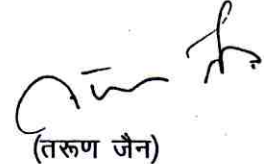 (तरूण जैन)